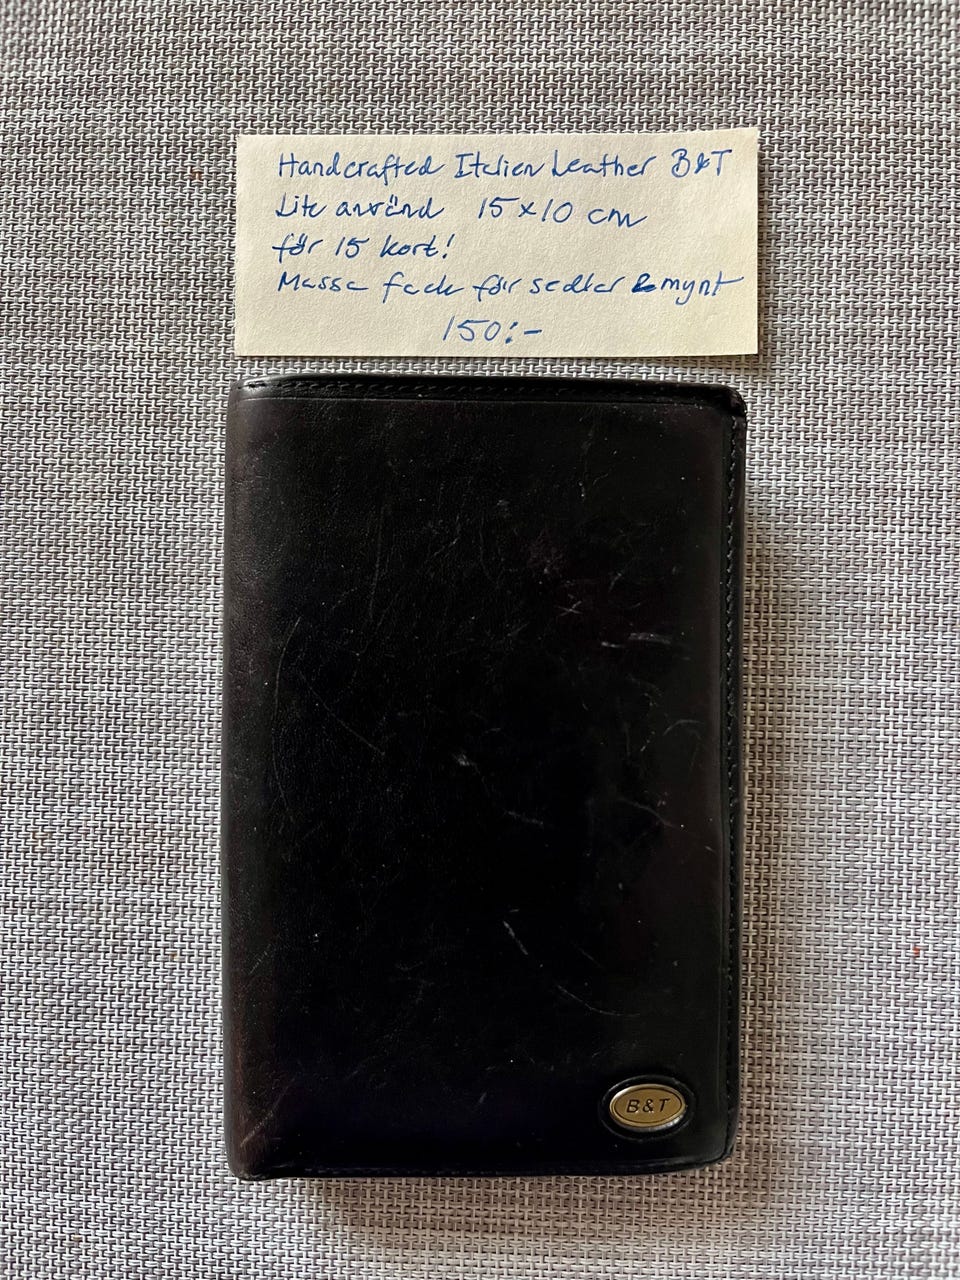 Handcrafted Italien Leather B&T
Lite använd 15x10 cm
för 15 kort!
Massa fack för sedlar & mynt
150:-
B&T